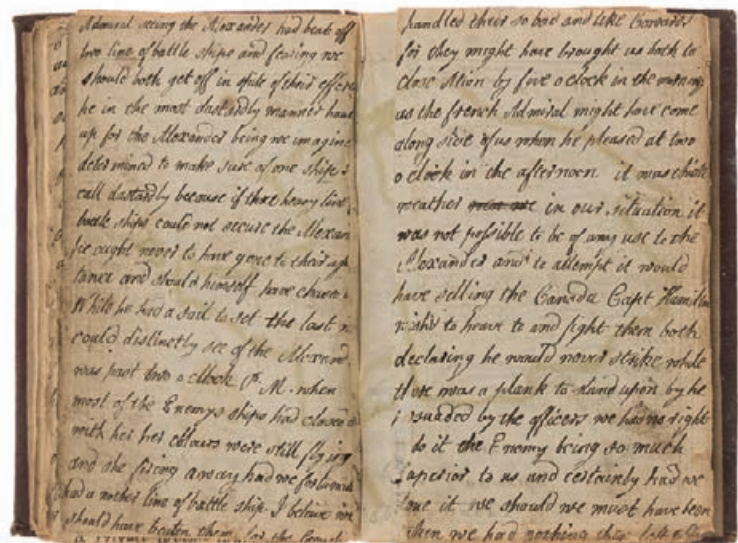 Admiral seeing the Alexander had beat off
two line of battle ships and fearing we
should both get off in spite of their
he in the most dastardly manner
up for the Alexander being we imagine
determined to make sure of one ship
call dastardly because if three heavy line
battle ships could not secure the
he ought never to have gone to their
and should himself have
While he had a sail to set the last
could distinctly see of the
was past two o clock P. M. when
most of the Enemys ships had closed
with her her colours were still flying
and she firing away had we
had a nother line of battle ship I believe we
should have beaten them for the
handled their so bad and like Cowards
for they might have brought us both to
close Ation by five o clock in the
as the french Admiral might have come
along side of us when he pleased at two
o clock in the afternoon it was
weather in our situation it
was not possible to be of any use to the
Alexander and to attempt it would
have selling the Canada Capt
to heave to and fight them both
declaring he would never strike while
there was a plank to stand upon by he
by the officers we had no right
do it the Enemy being so much
superior to us and certainly had we
it we should we must have been
we had nothing this left